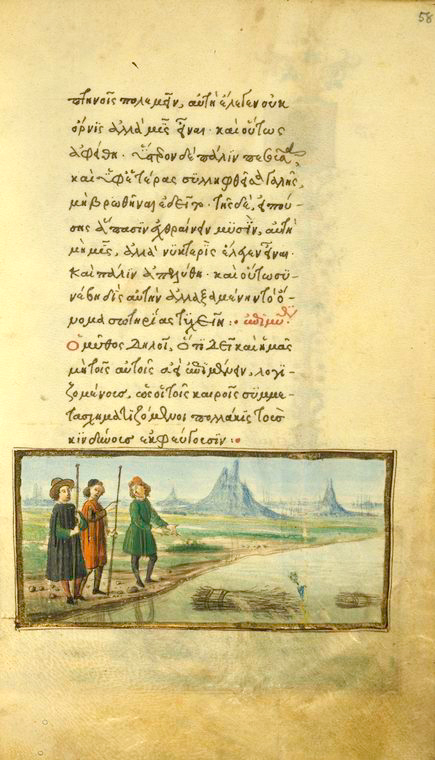 58
πτηνοῖς πολεμεῖν, αὐτὴ ἔλεγεν οὐκ
ὄρνις ἀλλὰ μῦς εἶναι· καὶ οὕτως
ἀφείθη· ὕστερον δὲ πάλιν πεσοῦσα,
καὶ ὑφ' ἑτέρας συλληφθεῖσα γαλῆς,
μὴ βρωθῆναι ἐδεῖτο· τῆς δὲ, εἰπού-
σης ἅπασιν ἐχθραίνειν μυσὶν, αὐτὴ
μὴ μῦς, ἀλλὰ νυκτερὶς ἔλεγεν εἶναι·
καὶ πάλιν ἀπελύθη· καὶ οὕτω συ-
νέβη δὶς αὐτὴν ἀλλαξαμένην τὸ ὄ-
νομα σωτηρίας τυχεῖν : ἐπιμύθ
ὁ μῦθος δηλοῖ, ὅτι δεῖ καὶ ἡμᾶς
μὴ τοῖς αὐτοῖς ἀεὶ ἐπιμένειν, λογι-
ζομένους, ὡς οἱ τοῖς καιροῖς συμμε-
τασχηματιζόμενοι πολλάκις τοὺς
κινδύνους ἐκφεύγουσιν :